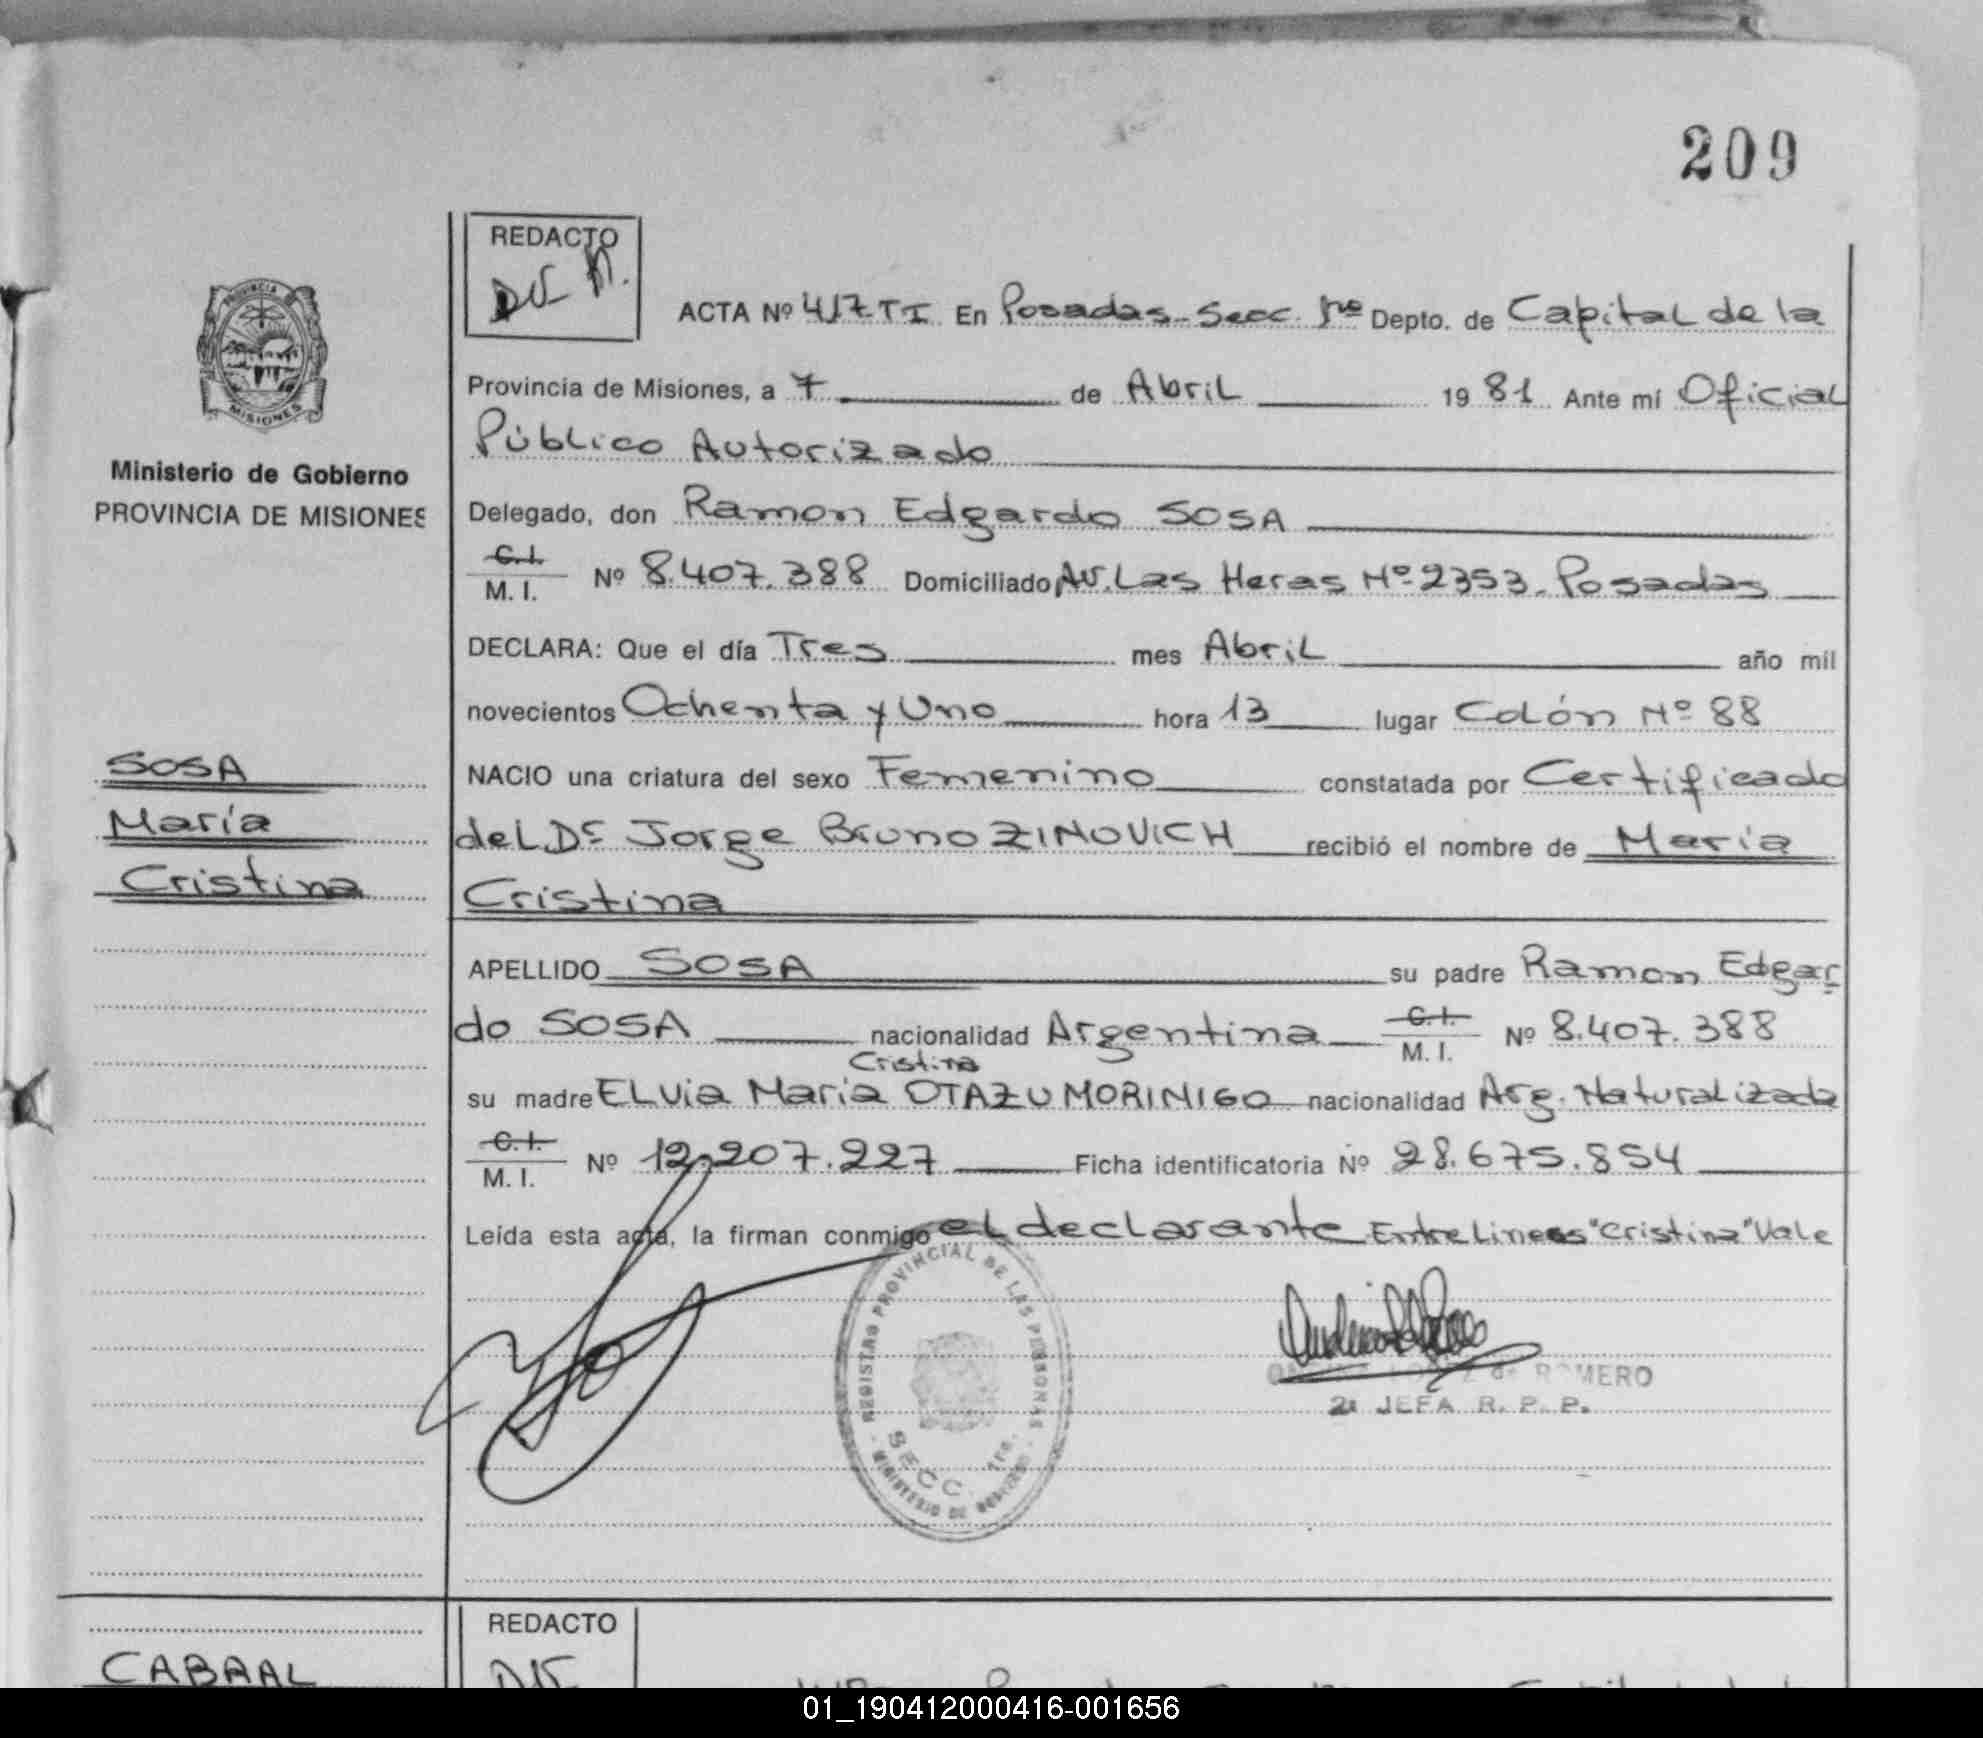 209
REDACTO
ACTA Nº 417 T I En Posadas-Secc. 1ra Depto. de Capital de la
Provincia de Misiones, a 7 de Abril 1981 Ante mí Oficial
Público Autorizado
Ministerio de Gobierno
PROVINCIA DE MISIONES
Delegado, don Ramon Edgardo SOSA
C.I. M. I. Nº 8.407.388 Domiciliado Av. Las Heras Nº 2353. Posadas
DECLARA: Que el día Tres mes Abril año mil
novecientos Ochenta y Uno hora 13 lugar Colón Nº 88
SOSA
María
Cristina
NACIO una criatura del sexo Femenino constatada por Certificado
del Dr Jorge Bruno ZINOVICH recibió el nombre de María
Cristina
APELLIDO SOSA su padre Ramon Edgar
do SOSA nacionalidad Argentina C.I. M. I. Nº 8.407.388
Cristina
su madre ELVia María OTAZU MORINIGO nacionalidad Arg. Naturalizada
C.I. M. I. Nº 12.207.227 Ficha identificatoria Nº 28.675.854
Leída esta acta, la firman conmigo el declarante Entre Lineas "Cristina" Vale
REGISTRO PROVINCIAL DE LAS PERSONAS
SECC. 1ra.
MINISTERIO DE GOBIERNO
de ROMERO
2ª JEFA R. P. P.
REDACTO
CABRAL
01_190412000416-001656